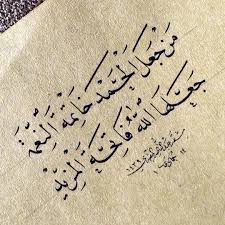 مَنْ جَعَلَ الْحَمْدَ خَاتِمَةَ النِّعْمَةِ
جَعَلَهَا اللهُ فَاتِحَةَ الْمَزِيْدِ